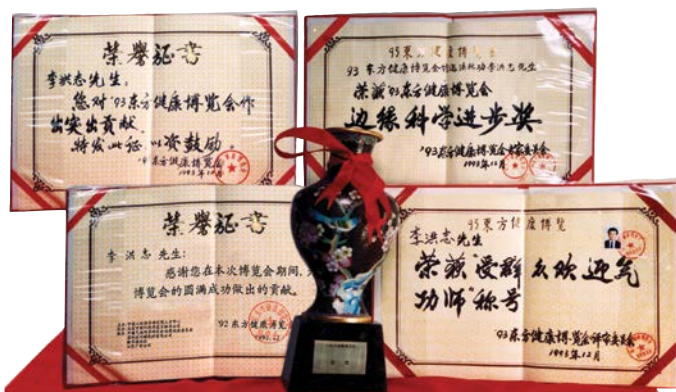 荣誉证书
李洪志先生:
您对'93东方健康博览会作
出突出贡献,
特发此证,以资鼓励。
'93东方健康博览会
1993年12月
93东方健康博览会
李洪志先生
荣获'93东方健康博览会
边缘科学进步奖
'93东方健康博览会专家委员会
1993年12月
荣誉证书
李洪志先生:
感谢您在本次博览会期间,
博览会的圆满成功做出的贡献。
'92东方健康博览
1992.12
93东方健康博览
李洪志先生
荣获"受群众欢迎气
功师"称号
'93东方健康博览会评审委员会
1993年12月